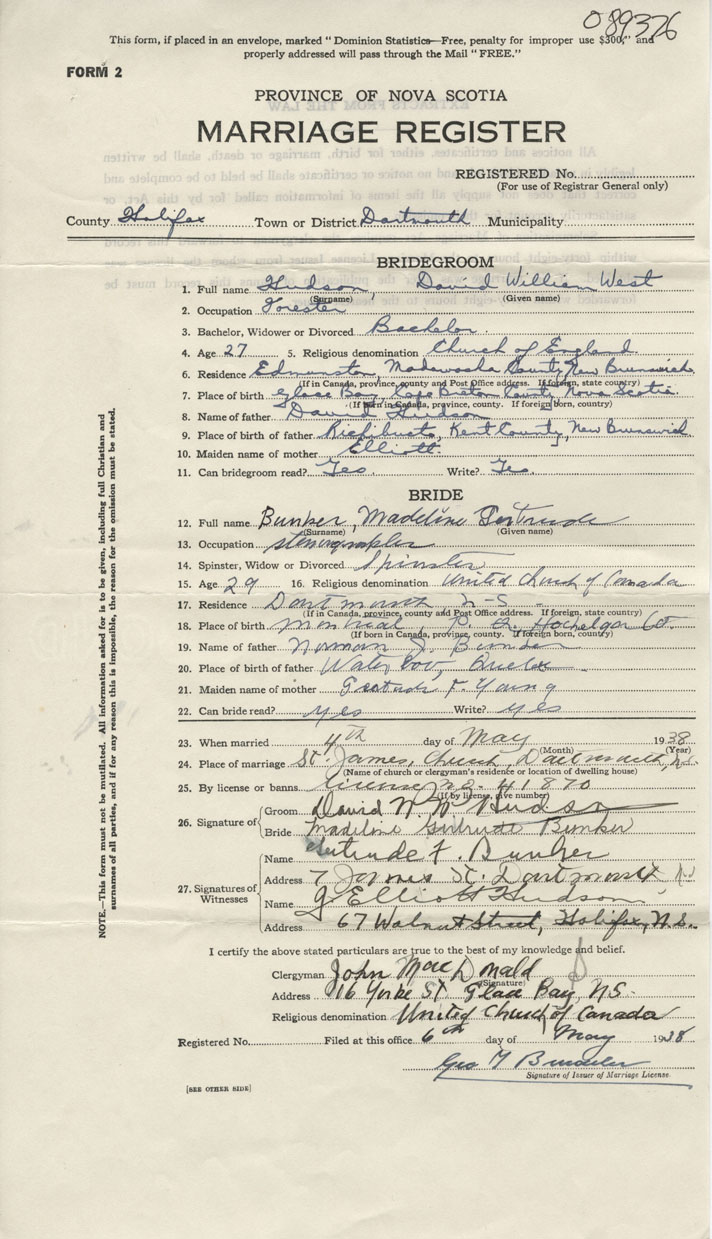 089376
This form, if placed in an envelope, marked "Dominion Statistics—Free, penalty for improper use $300," and
properly addressed will pass through the Mail "FREE."
FORM 2
PROVINCE OF NOVA SCOTIA
MARRIAGE REGISTER
REGISTERED No.
(For use of Registrar General only)
County Halifax Town or District Dartmouth Municipality
BRIDEGROOM
1. Full name Hudson, David William West
(Surname) (Given name)
2. Occupation Forester
3. Bachelor, Widower or Divorced Bachelor
4. Age 27 5. Religious denomination Church of England
6. Residence Edmunston, Madawaska County, New Brunswick
(If in Canada, province, county and Post Office address. If foreign, state country)
7. Place of birth Glace Bay, Cape Breton County, Nova Scotia
(If born in Canada, province, county. If foreign born, country)
8. Name of father David Hudson
9. Place of birth of father Richibucto, Kent County, New Brunswick
10. Maiden name of mother Elliott
11. Can bridegroom read? Yes Write? Yes
BRIDE
12. Full name Bunker, Madeline Gertrude
(Surname) (Given name)
13. Occupation stenographer
14. Spinster, Widow or Divorced Spinster
15. Age 29 16. Religious denomination United Church of Canada
17. Residence Dartmouth N-S
(If in Canada, province, county and Post Office address. If foreign, state country)
18. Place of birth Montreal, P. Q. Hochelaga Co.
(If born in Canada, province, county. If foreign born, country)
19. Name of father Norman J. Bunker
20. Place of birth of father Waterloo, Quebec
21. Maiden name of mother Gertrude F. Young
22. Can bride read? yes Write? yes
23. When married 4th day of May 1938
(Month) (Year)
24. Place of marriage St. James Church, Dartmouth, N.S.
(Name of church or clergyman's residence or location of dwelling house)
25. By license or banns license no. 41870
(If by license, give number)
26. Signature of Groom David W W Hudson
Bride Madeline Gertrude Bunker
27. Signatures of Witnesses
Name Gertrude F. Bunker
Address 7 James St. Dartmouth N.S
Name G Elliott Hudson
Address 67 Walnut Street, Halifax, N.S.
I certify the above stated particulars are true to the best of my knowledge and belief.
Clergyman John MacDonald
(Signature)
Address 16 Yorke St Glace Bay, NS.
Religious denomination United Church of Canada
Registered No. Filed at this office 6th day of May 1938
Geo
Signature of Issuer of Marriage License
[SEE OTHER SIDE]
NOTE.—This form must not be mutilated. All information asked for is to be given, including full Christian and
surnames of all parties, and if for any reason this is impossible, the reason for the omission must be stated.